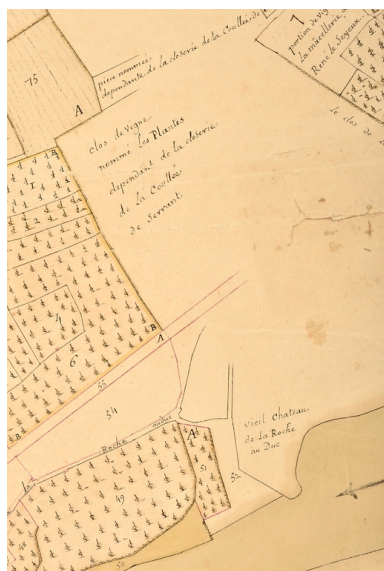 75
A
piece nommée
dependante de la closerie de la Coullée de
7
portion de vig
la marcellerie
René le Seyeux
le clos de
clos de vigne
nommé Les Plantes
dependant de la closerie
de la Coullée
de Serrant
B
1
2
4
6
B
A
B
55
54
La Roche auduc
A
Vieil Chateau
de la Roche
au Duc
49
51
52
48
50